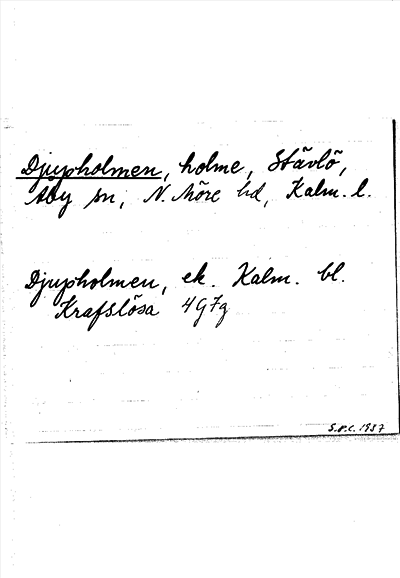 Djupholmen, holme, Stävlö,
Åby sn, N. Möre hd, Kalm. l.
Djupholmen, ek. Kalm. bl.
Krafslösa 4G7g
1937